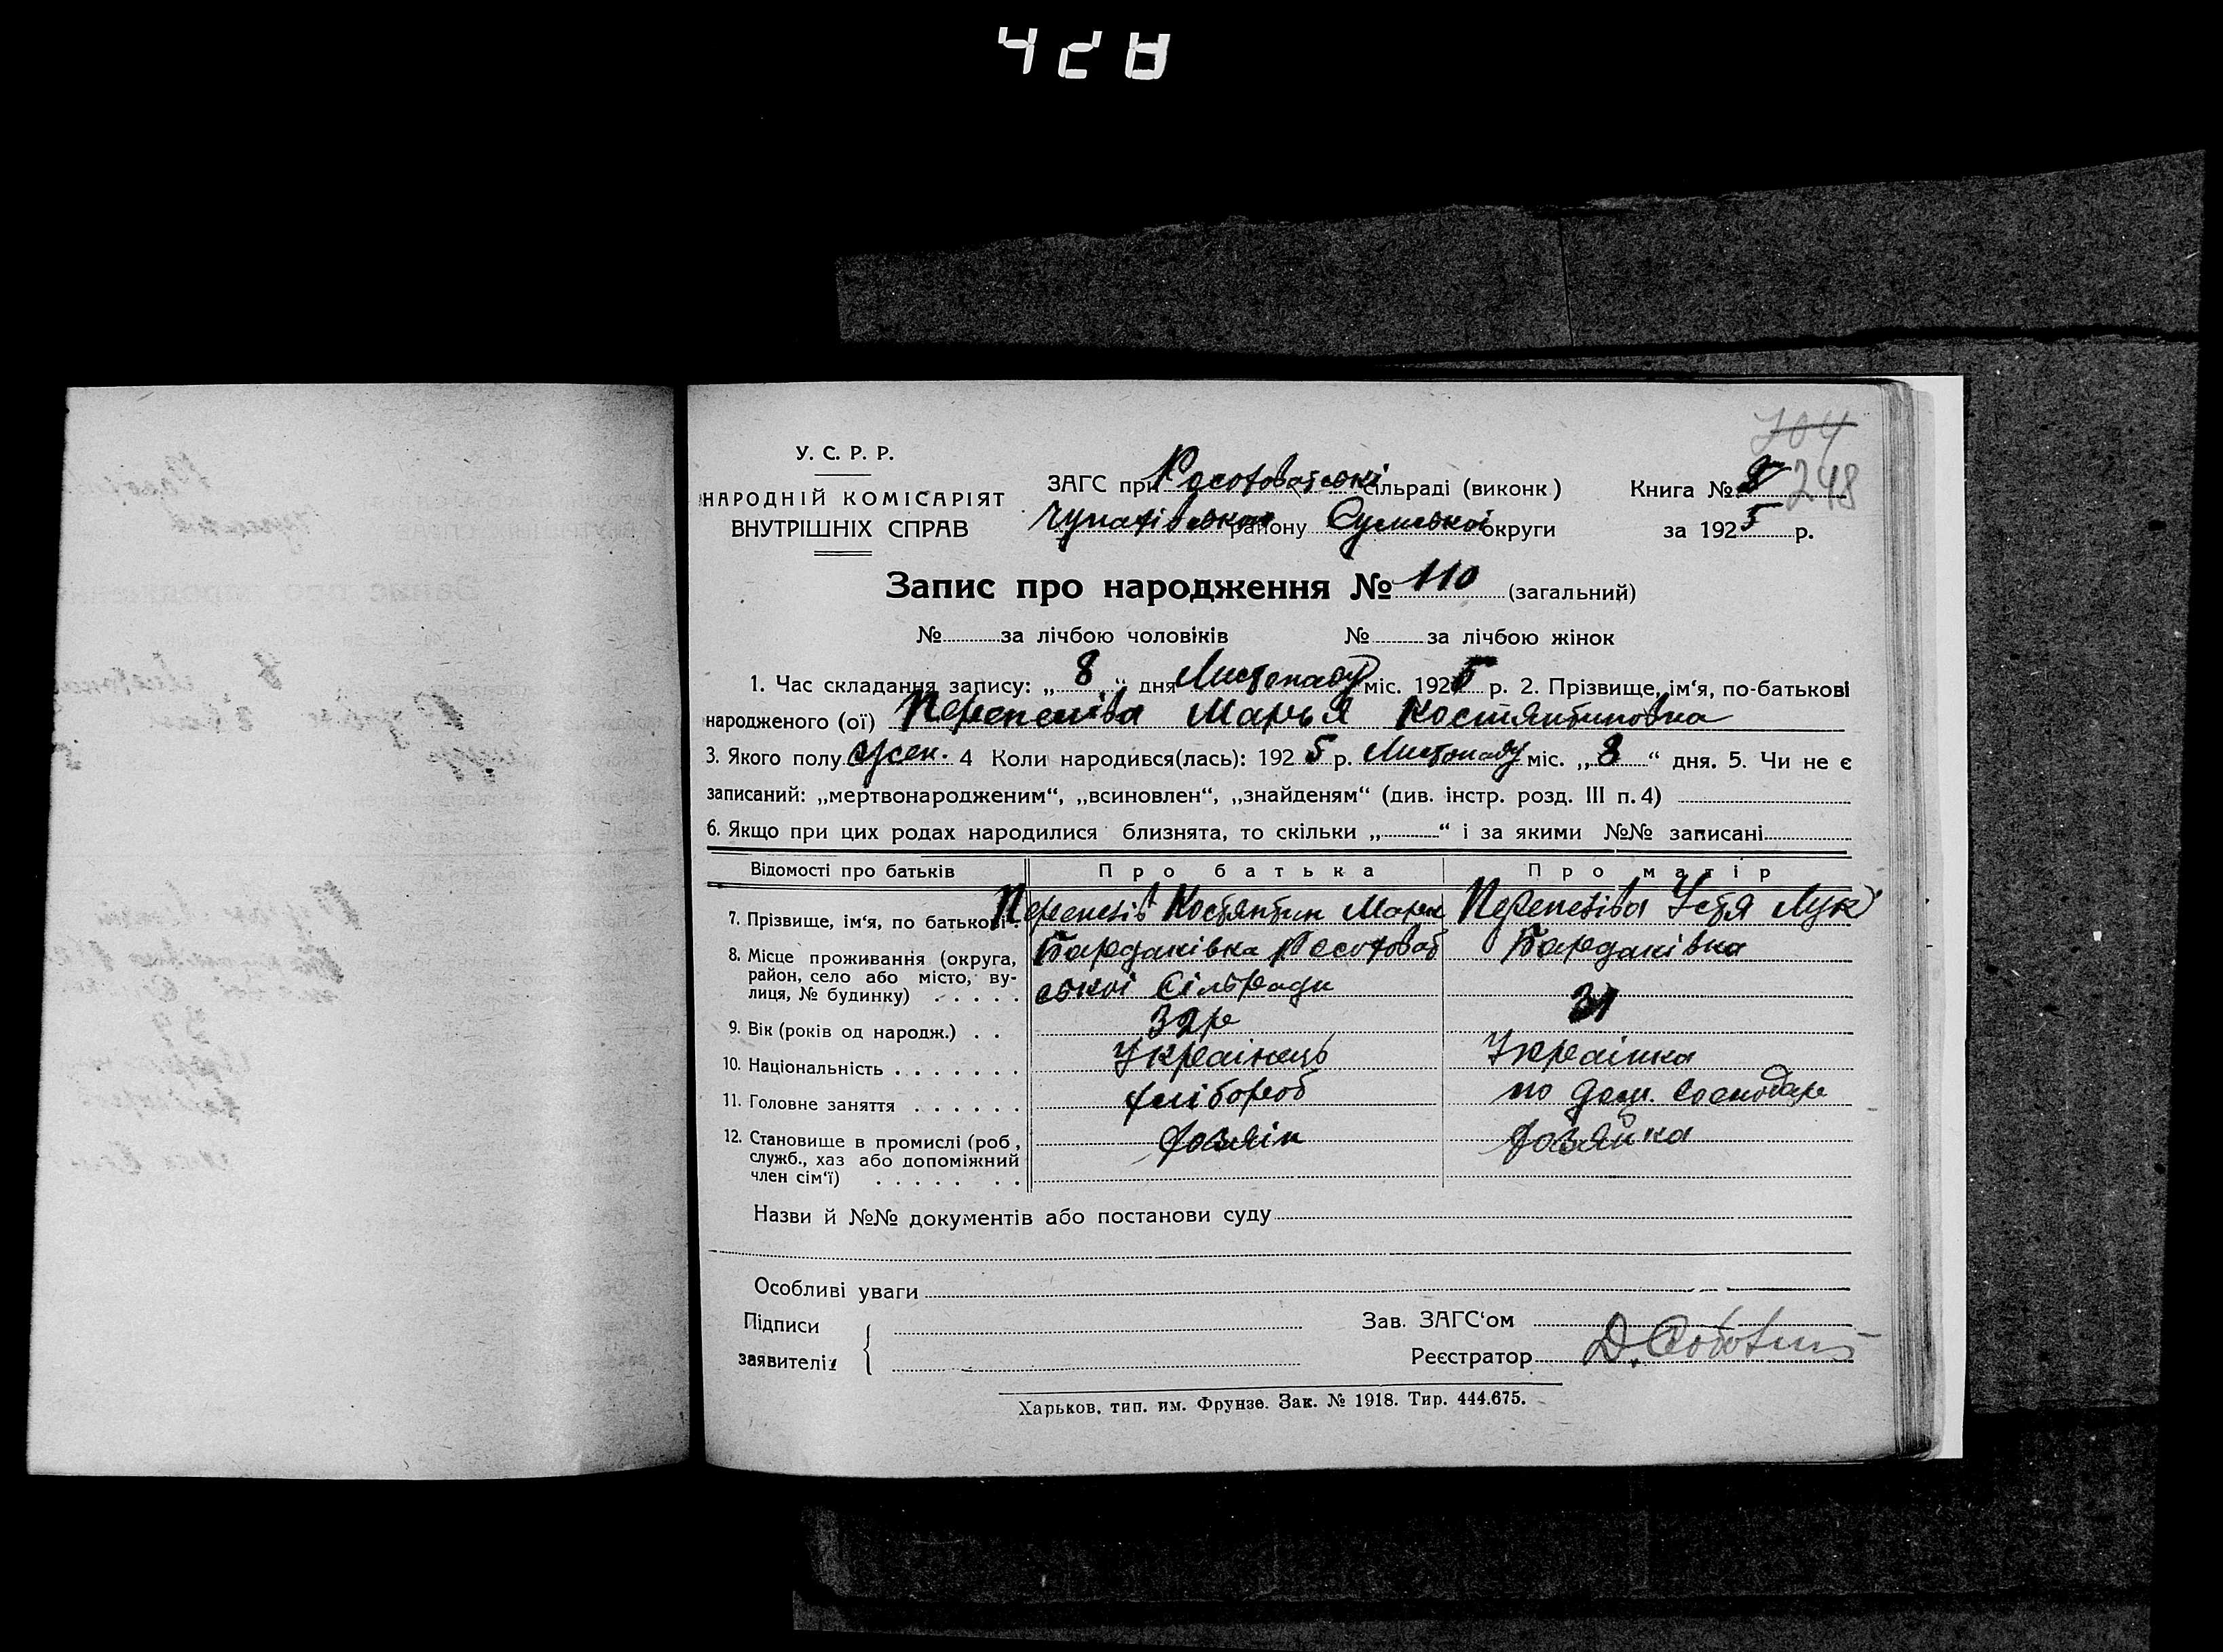 428
704
248
У. С. Р. Р.
НАРОДНІЙ КОМІСАРІЯТ
ВНУТРІШНІХ СПРАВ
ЗАГС при сільраді (виконк)
району Сумської округи
Книга № 8
за 1925 р.
Запис про народження № 110 (загальний)
№ за лічбою чоловіків № за лічбою жінок
1. Час складання запису: „ 8 “ дня Листопаду міс. 1925 р. 2. Прізвище, ім‘я, по-батькові
народженого (ої) Марья Костянтиновна
3. Якого полу жен. 4 Коли народився(лась): 1925 р. Листопаду міс. „ 8 “ дня. 5. Чи не є
записаний: „мертвонародженим“, „всиновлен“, „знайденям“ (див. інстр. розд. III п. 4)
6. Якщо при цих родах народилися близнята, то скільки „ “ і за якими №№ записані
Відомості про батьків Про батька Про матір
7. Прізвище, ім‘я, по батькові . Костянтин Марк Устя Лук
8. Місце проживання (округа, Бардаківка Бардаківка
район, село або місто, ву-
лиця, № будинку) . . . . . ської Сільради
9. Вік (років од народж.) . . 32 р 31
10. Національність . . . . . . . Українець Українка
11. Головне заняття . . . . . . хлібороб по дом. господар
12. Становище в промислі (роб, хозяїн хозяйка
служб., хаз або допоміжний
член сім‘ї) . . . . . . .
Назви й №№ документів або постанови суду
Особливі уваги
Підписи
заявителів
Зав. ЗАГС‘ом
Реєстратор Д.
Харьков, тип. им. Фрунзе. Зак. № 1918. Тир. 444.675.